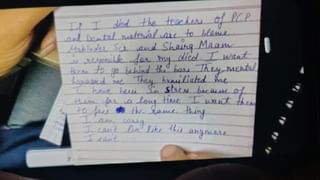 If I died the teachers of PCP
and Dental material are to blame
Mohinder Sir and Shairg Maam
is responible for my died I want
them to go behind the bars They mental
harassed me They humiliated me
I have been in stress because of
them for a long time I want them
to face the same thing
I am sorry
I can't live like this anymore
I can't